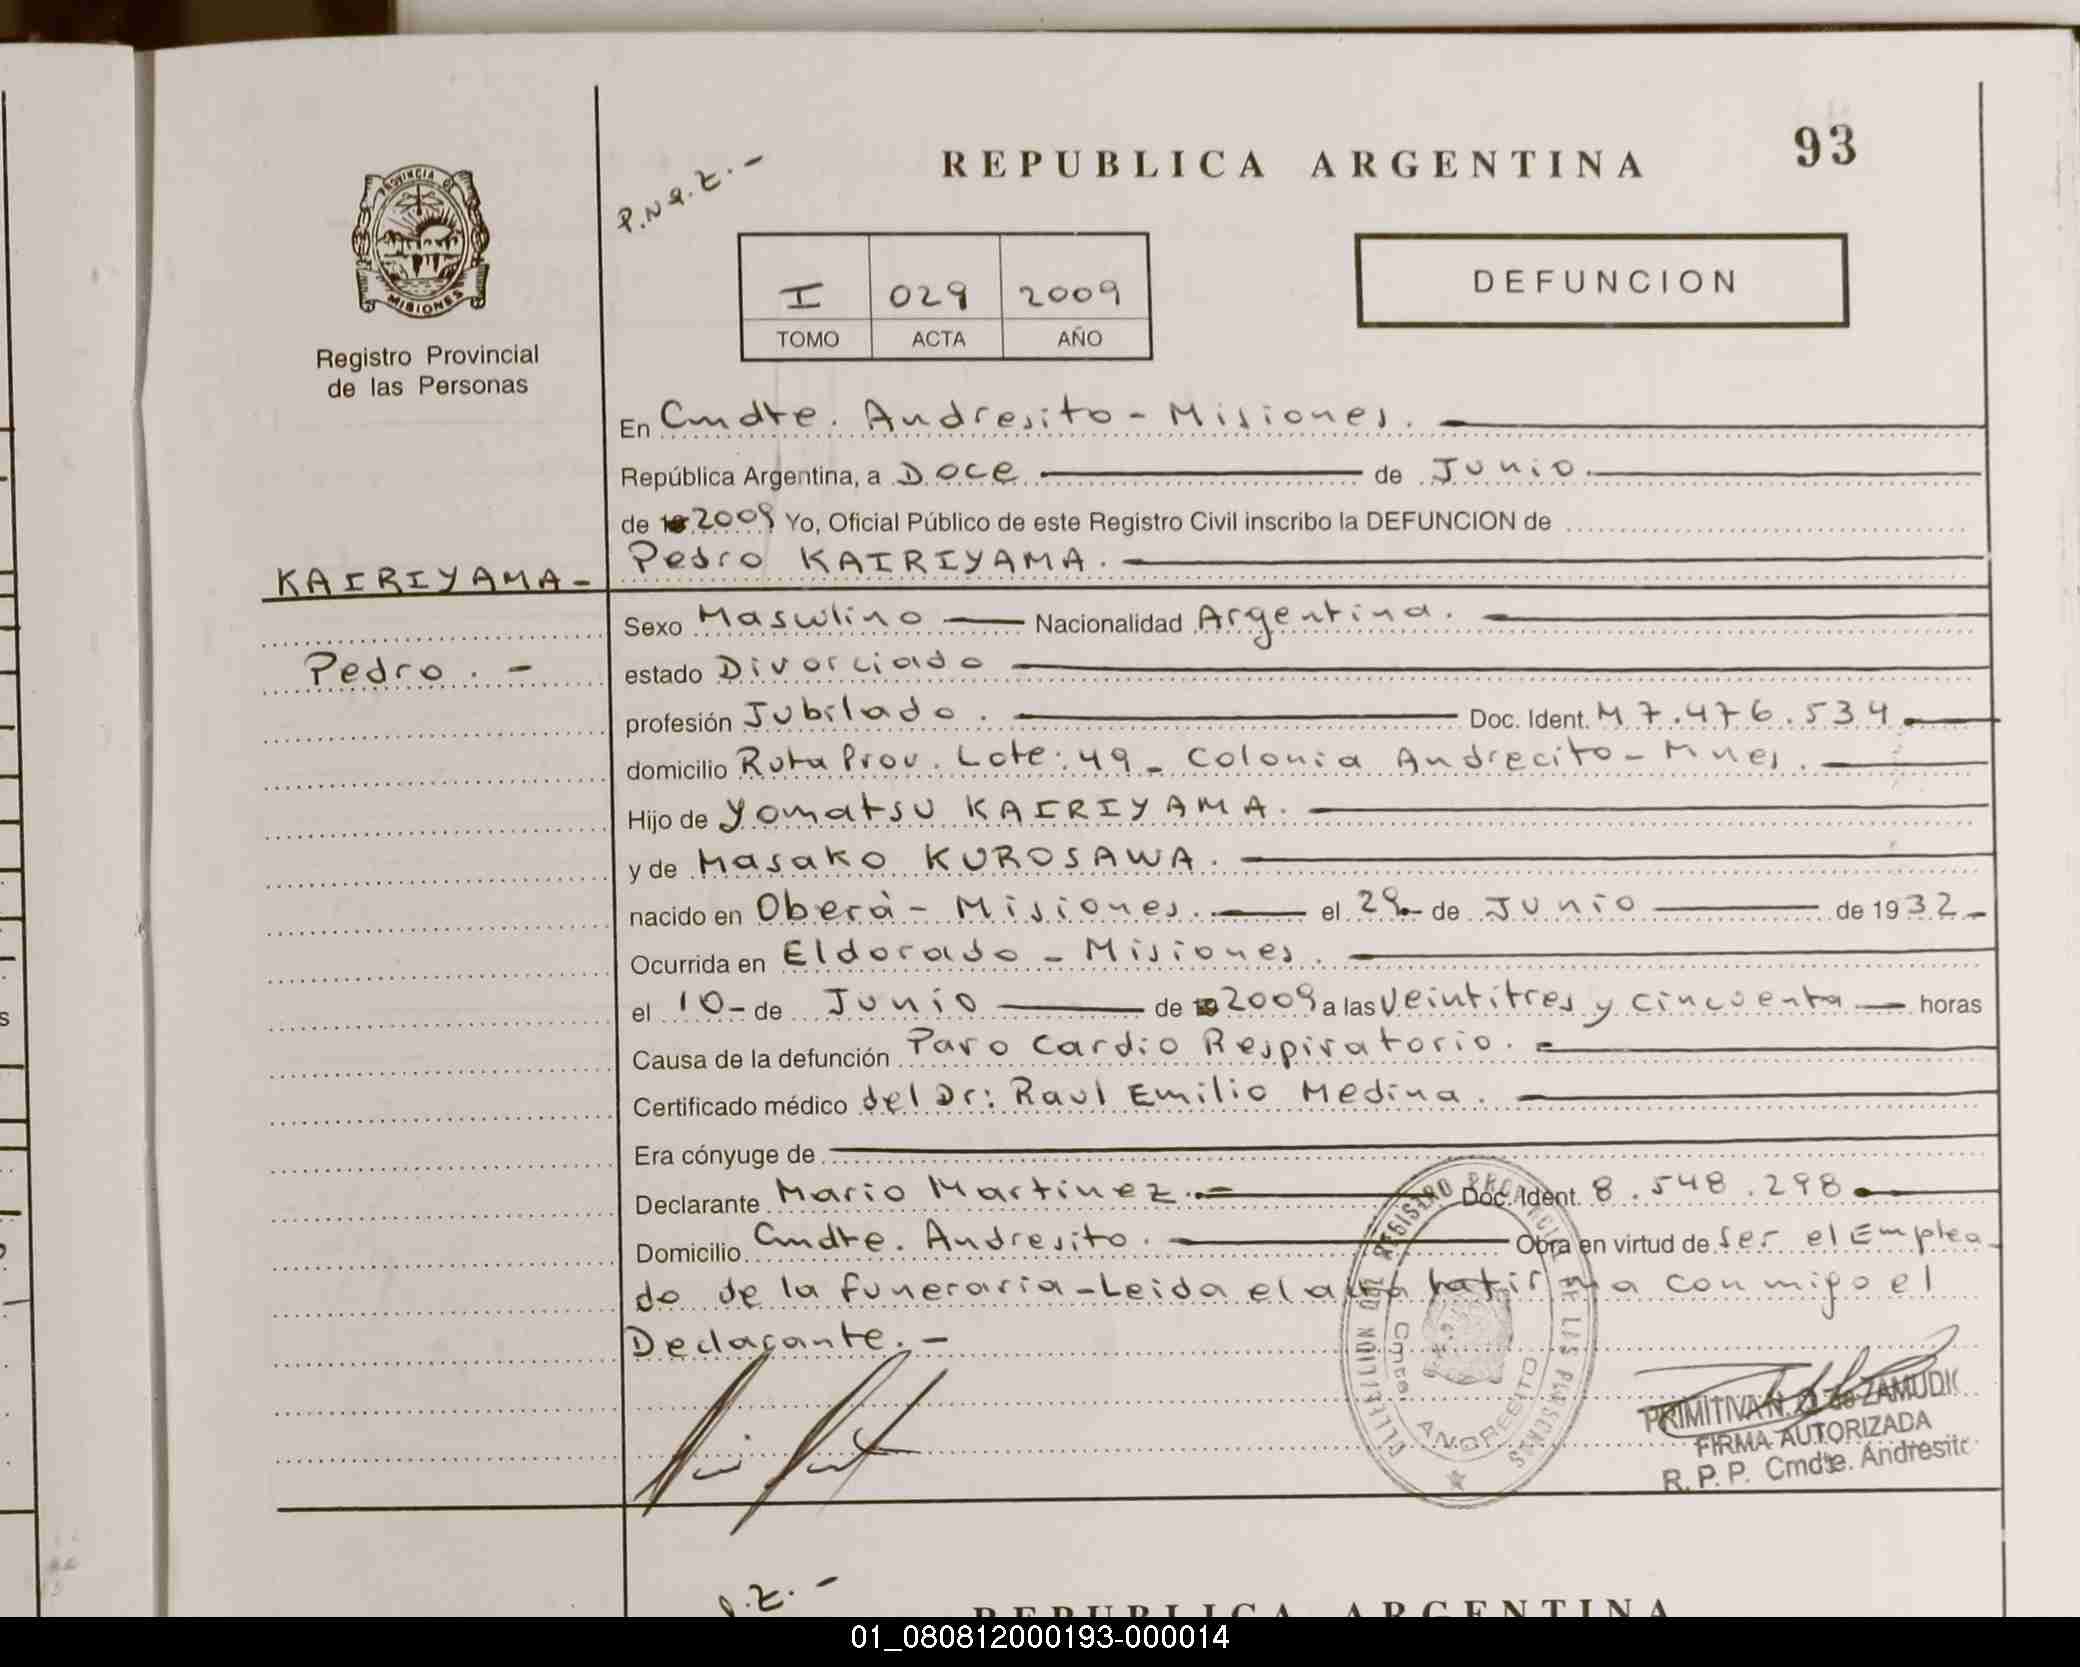 93
REPUBLICA ARGENTINA
P.N.Q.Z.-
PROVINCIA DE
MISIONES
DEFUNCION
I 029 2009
TOMO ACTA AÑO
Registro Provincial
de las Personas
En Cmdte. Andresito - Misiones.
República Argentina, a Doce de Junio.
de 2009 Yo, Oficial Público de este Registro Civil inscribo la DEFUNCION de
Pedro KAIRIYAMA.
KAIRIYAMA-
Sexo Masculino Nacionalidad Argentina.
Pedro.-
estado Divorciado
profesión Jubilado. Doc. Ident. M 7.476.534
domicilio Ruta Prov. Lote: 49_ Colonia Andrecito - Mnes.
Hijo de Yomatsu KAIRIYAMA.
y de Masako KUROSAWA.
nacido en Oberà - Misiones. el 29 de Junio de 1932-
Ocurrida en Eldorado - Misiones.
el 10- de Junio de 2009 a las Veintitres y cincuenta horas
Causa de la defunción Paro Cardio Respiratorio.
Certificado médico del Dr: Raul Emilio Medina.
Era cónyuge de
Declarante Mario Martinez.- Doc. Ident. 8.548.298
Domicilio Cmdte. Andresito. Obra en virtud de ser el Emplea
do de la funeraria - Leida el acta la firma conmigo el
Declarante.-
REGISTRO PROVINCIAL DE LAS PERSONAS
Cmte. ANDRESITO
PRIMITIVA N. de ZAMUDIO
FIRMA AUTORIZADA
R. P. P. Cmdte. Andresito
.Z.-
REPUBLICA ARGENTINA
01_080812000193-000014